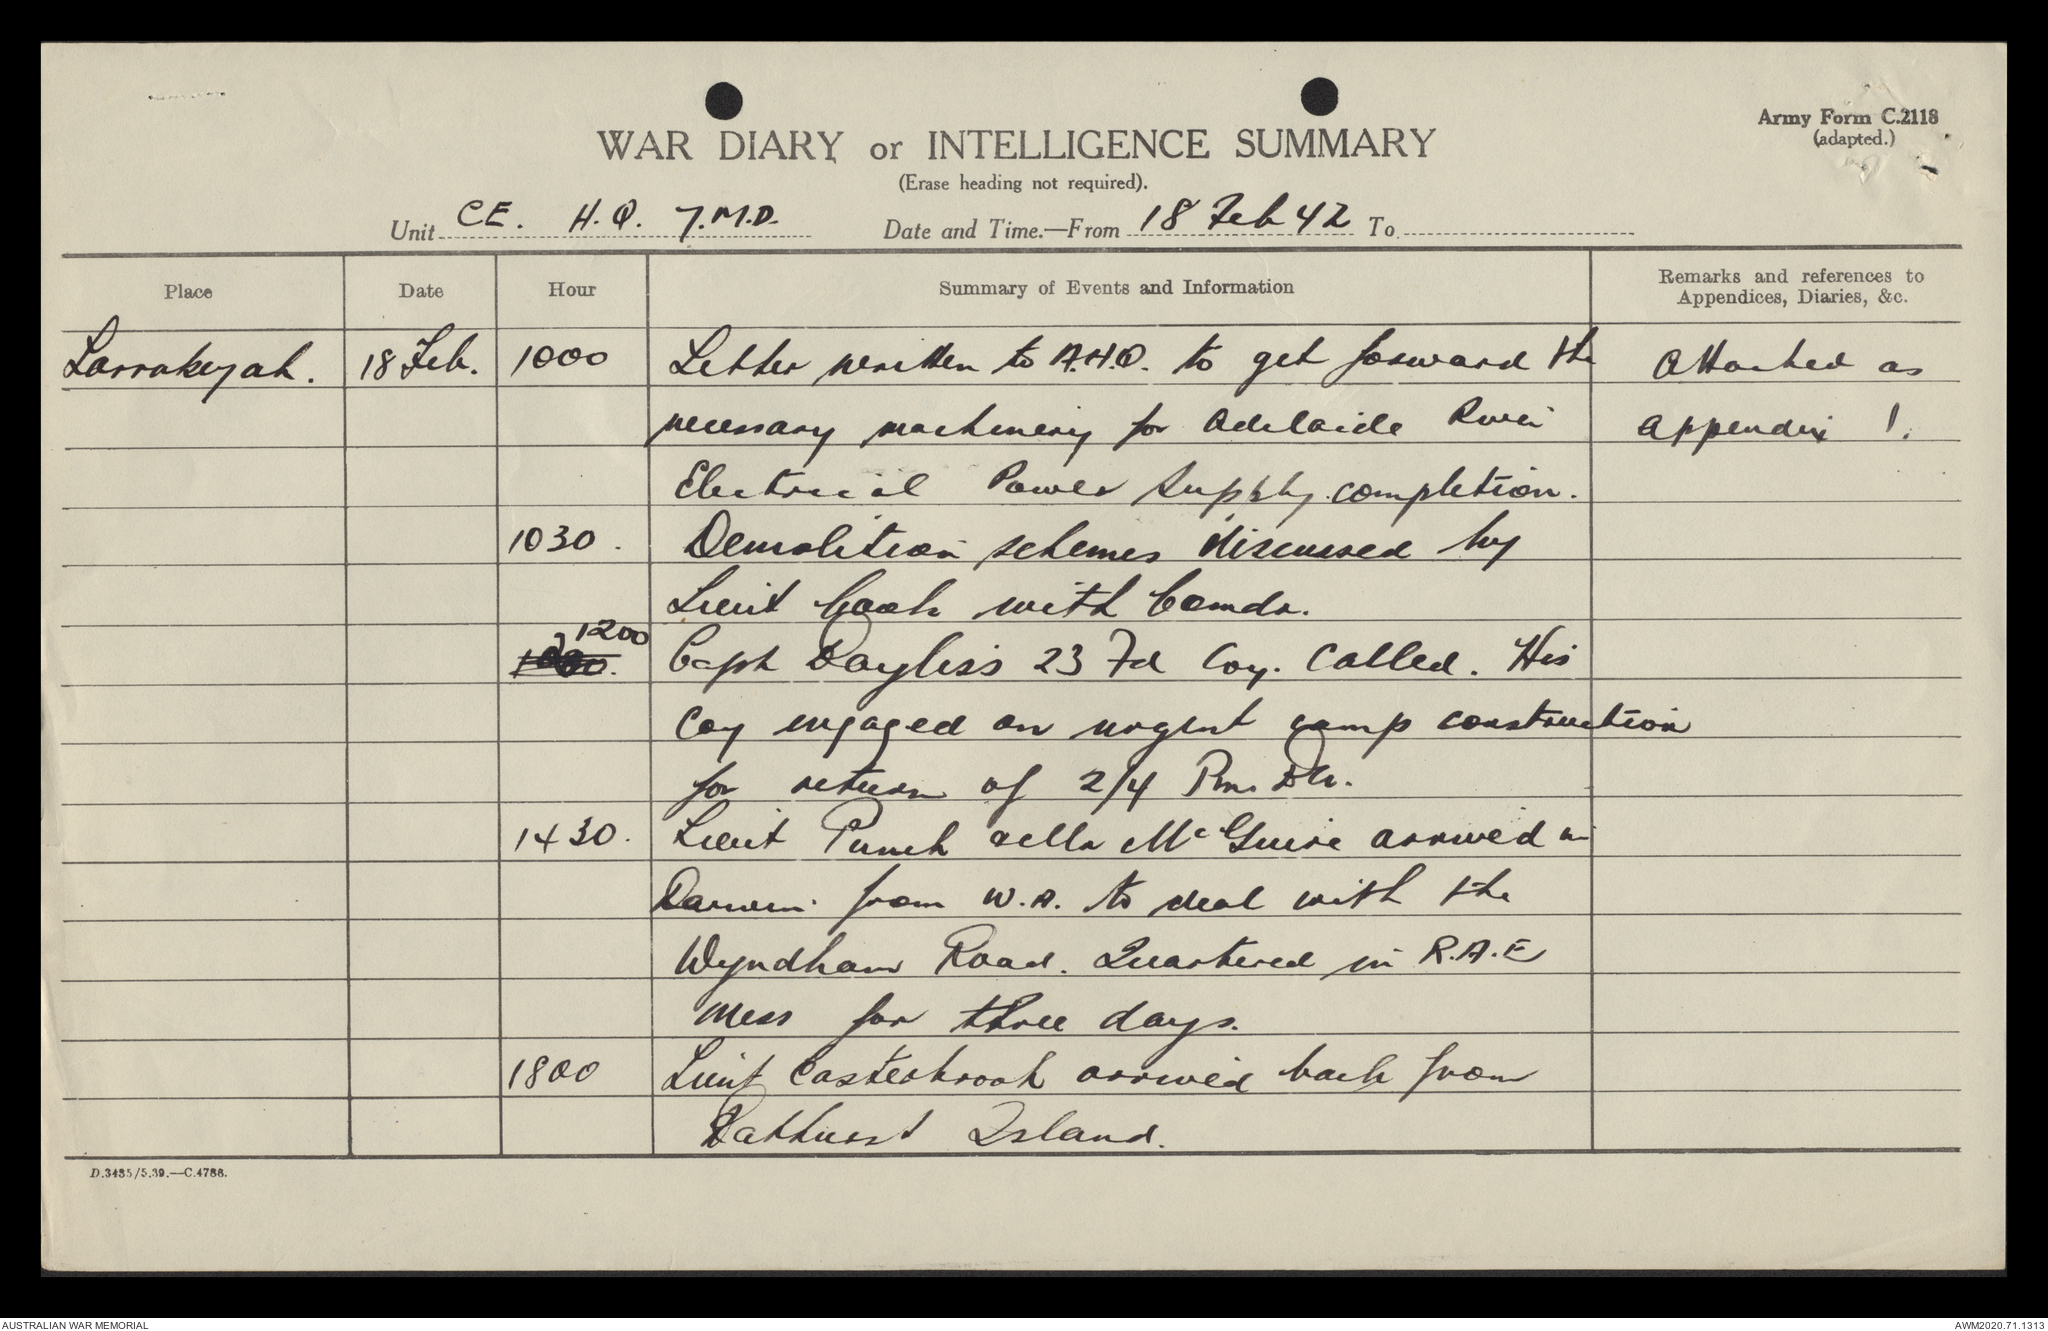 Army Form C.2118
(adapted.)
WAR DIARY or INTELLIGENCE SUMMARY
(Erase heading not required).
Unit C.E. H.Q. 7.M.D. Date and Time.—From 18 Feb 42 To
Place Date Hour Summary of Events and Information Remarks and references to
Appendices, Diaries, &c.
Larrakeyah. 18 Feb. 1000 Letter written to A.H.Q. to get forward the Attached as
necessary machinery for Adelaide River appendix 1.
Electrical Power Supply completion.
1030. Demolition schemes discussed by
Lieut with Comdr.
1200
Capt Bayliss 23 Fd Coy. Called. His
Coy engaged on urgent camp construction
for return of 2/4 Pnr. Bn.
1430. Lieut Punch McGuire arrived in
Darwin from W.A. to deal with the
Wyndham Road. Quartered in R.A.E
Mess for three days.
1800 Lieut Easterbrook arrived back from
Bathurst Island.
D.3435/5.39.—C.4786.
AUSTRALIAN WAR MEMORIAL AWM2020.71.1313